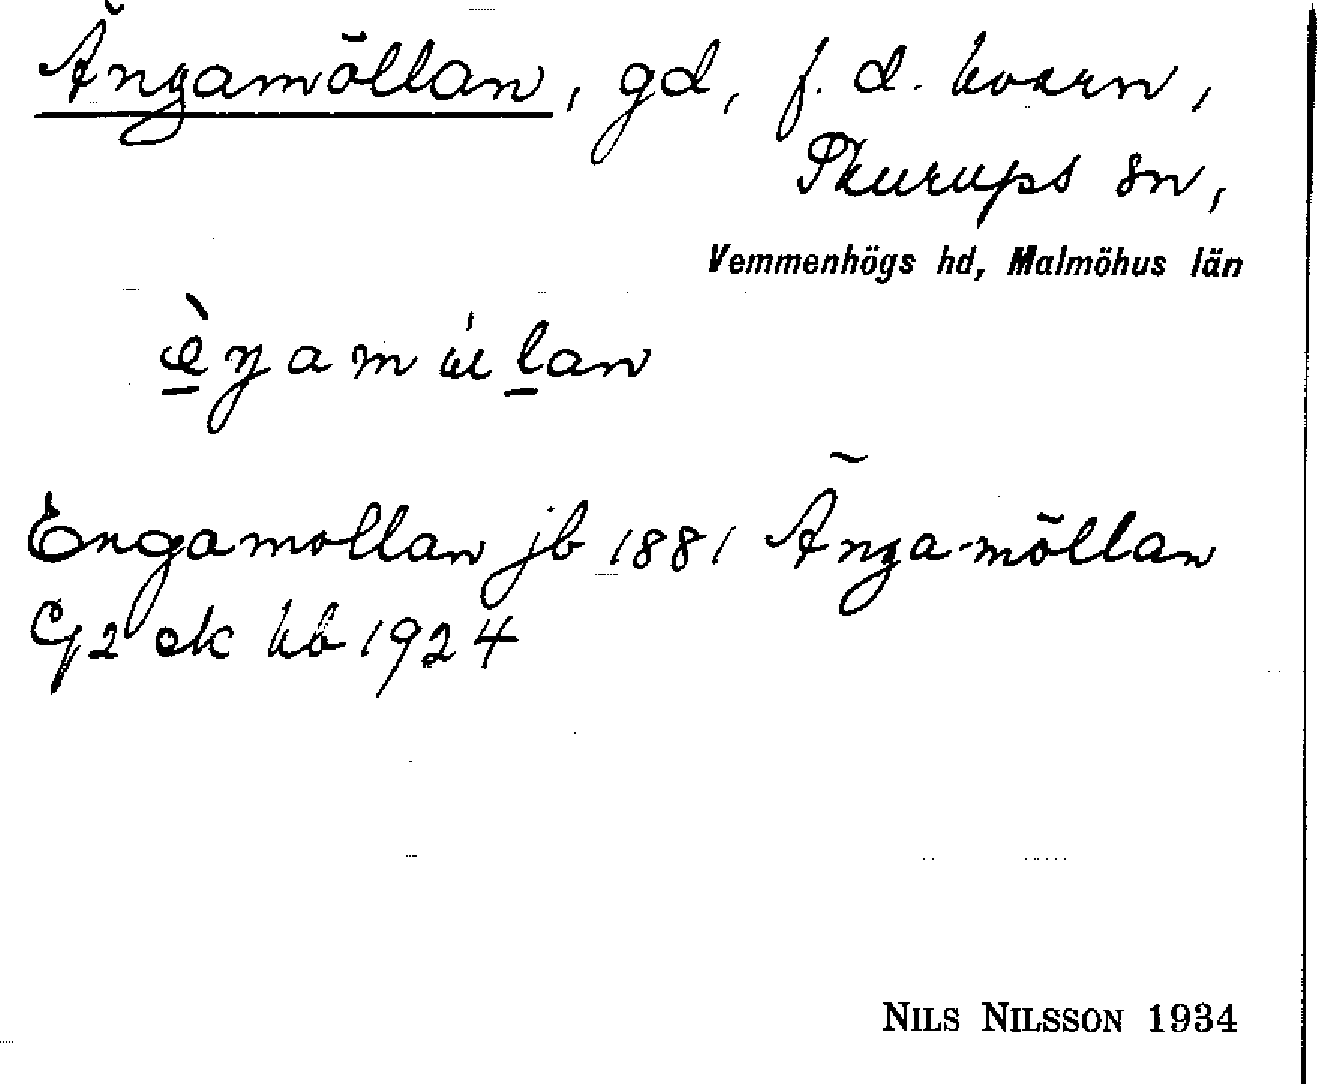 Ängamöllan, gd, f. d. kvarn,
Skurups sn,
Vemmenhögs hd, Malmöhus län
Engamollan jb 1881 Änga-möllan
G2 ek kb 1924
NILS NILSSON 1934